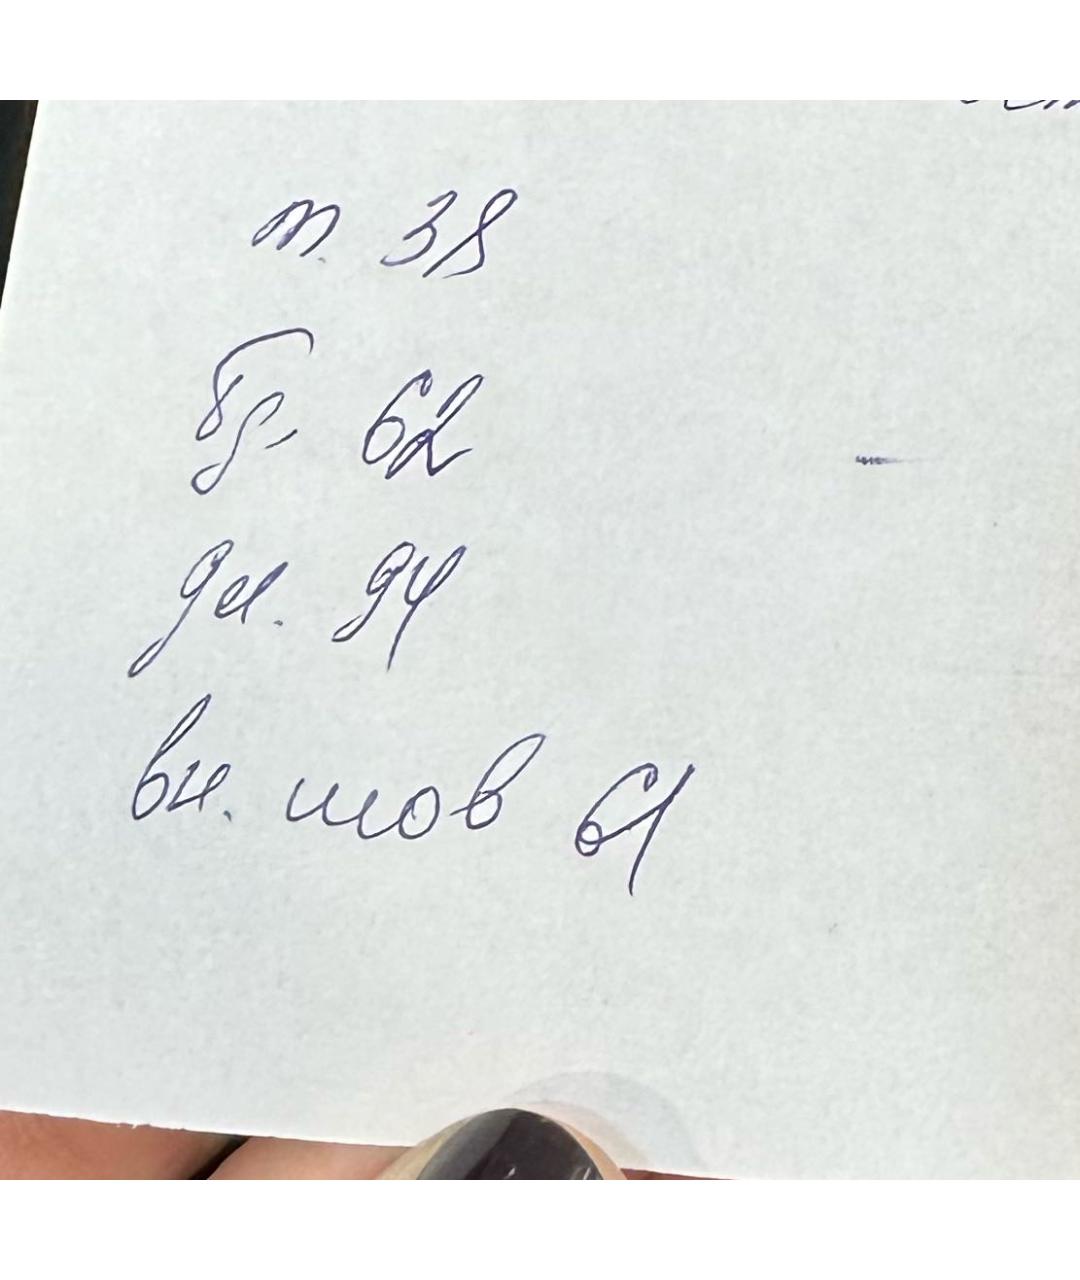 т. 38
бд. 62
дл. 94
вн. шов 61